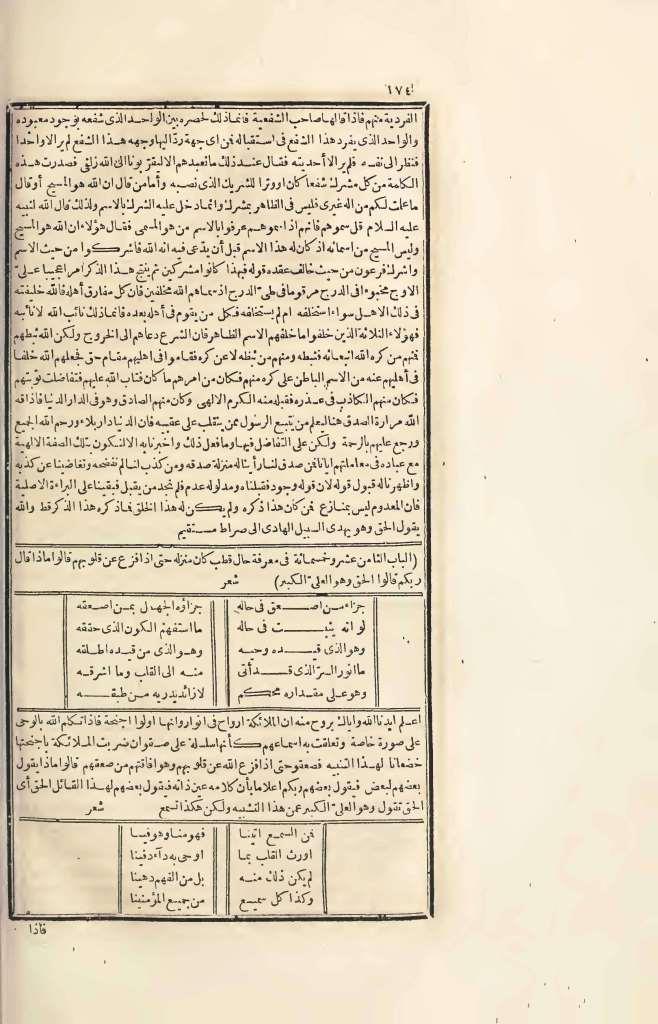 ١٧٤
الفردية منهم فاذا قالها صاحب الشفعية فانما ذلك لحصره بين الواحد الذى شفعه بوجود معبوده
والواحد الذى يفرد هذا الشفع فى استقباله فمن اى جهة ردّ اليها وجهه هذا الشفع لم ير الا واحدا
فنظر الى نفسه فلم ير الا أحديته فقال عند ذلك ما نعبدهم الا ليقرّبونا الى الله زلفى فصدرت هذه
الكلمة من كل مشرك شفعا كان او وترا للشريك الذى نصبه وأما من قال ان الله هو المسيح أو قال
ما علمت لكم من اله غيرى فليس فى الظاهر بمشرك وانما دخل عليه الشرك بالاسم ولذلك قال الله لنبيه
عليه السلام قل سموهم فانهم اذا سموهم عرفوا بالاسم من هو المسمى فقال هؤلاء ان الله هو المسيح
وليس المسيح من اسمائه اذ كان له هذا الاسم قبل أن يدّعى فيه انه الله فاشركوا من حيث الاسم
واشرك فرعون من حيث خالف عقده قوله فبهذا كانوا مشركين ثم ينتج هذا الذكر امرا عجيبا على
الاوج مخبوءا فى الدرج مرقوما فى طىّ الدرج اذ سماهم الله مخلفين فان كل مفارق أهله فالله خليفته
فى ذلك الاهل سواء استخلفه ام لم يستخلفه فكل من يقوم فى أهله بعده فانما ذلك نائب الله لا نائبه
فهؤلاء الثلاثة الذين خلفوا ما خلفهم الاسم الظاهر فان الشرع دعاهم الى الخروج ولكن الله ثبطهم
فمنهم من كره الله انبعاثه فثبطه ومنهم من ثبطه لا عن كره فقاموا فى اهليهم مقام حق فجعلهم الله خلفا
فى أهليهم عنه من الاسم الباطن على كره منهم فكان من امرهم ما كان فتاب الله عليهم فتفاضلت توبتهم
فكان منهم الكاذب فى عذره فقبله منه الكرم الالهى وكان منهم الصادق وهو فى الدار الدنيا فاذاقه
الله مرارة الصدق هنا ليعلم من يتبع الرسول ممن ينقلب على عقبيه فان الدنيا دار بلاء ورحم الله الجميع
ورجع عليهم بالرحمة ولكن على التفاضل فيها وما فعل ذلك واخبرنا به الا لنكون بتلك الصفة الالهية
مع عباده فى معاملتهم ايانا فمن صدق لنا رأيناه منزلة صدقه ومن كذب لنا لم نفضحه وتغاضينا عن كذبه
واظهرنا له قبول قوله لان قوله وجود فقبلناه ومدلوله عدم فلم نجد من يقبل فبقينا على البراءة الاصلية
فان المعدوم ليس بمنازع فمن كان هذا ذكره ولم يكن له هذا الخلق فما ذكره هذا الذكر قط والله
يقول الحق وهو يهدى السبيل الهادى الى صراط مستقيم
(الباب الثامن عشر وخمسمائة فى معرفة حال قطب كان منزله حتى اذا فزع عن قلوبهم قالوا ماذا قال
ربكم قالوا الحق وهو العلىّ الكبير) شعر
جزاء من اصعق فى حاله جزاؤه الجهال بمن اصعقه
لو انه يثبت فى حاله ما استفهم الكون الذى حققه
وهو الذى قيده وحيه وهو الذى من قيده اطلقه
ما انور السرّ الذى قد أتى منه الى القلب وما اشرقه
وهو على مقداره محكم لا زائد يدريه من طبقه
اعلم ايدنا الله واياك بروح منه ان الملائكة ارواح فى انوار وانها اولوا اجنحة فاذا تكلم الله بالوحى
على صورة خاصة وتعلقت به اسماعهم كأنها سلسلة على صفوان ضربت الملائكة باجنحتها
خضعانا لهذا التشبيه فصعقوا حتى اذا فزع الله عن قلوبهم وهو افاقتهم من صعقهم قالوا ماذا يقول
بعضهم لبعض فيقول بعضهم ربكم اعلاما بأن كلامه عين ذاته فيقول بعضهم لهذا القائل الحق أى
الحق تقول وهو العلىّ الكبير عن هذا التشبيه ولكن هكذا تسمع شعر
فمن السمع اتينا فهو منا وهو فينا
اورث القلب بما اوحى به دآء دفينا
لم يكن ذلك منه بل من الفهم دهينا
وكذا كل سميع من جميع المؤمنينا
فاذا